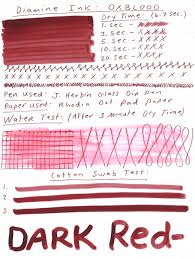 Diamine Ink: OXBLOOD
Dry Time: (6-7 sec.)
1. Sec -
3. Sec -
5. Sec. -
10. Sec. -
15. Sec. -
20. Sec. -
X X X X X X X X X X X X X X X X X X X X X X X X
Pen Used: J. Herbin Glass Dip Pen
Paper Used: Rhodia Dot Pad Paper
Water Test: (After 3 Minute Dry Time)
Cotton Swab Test:
1.
2.
3.
DARK Red-